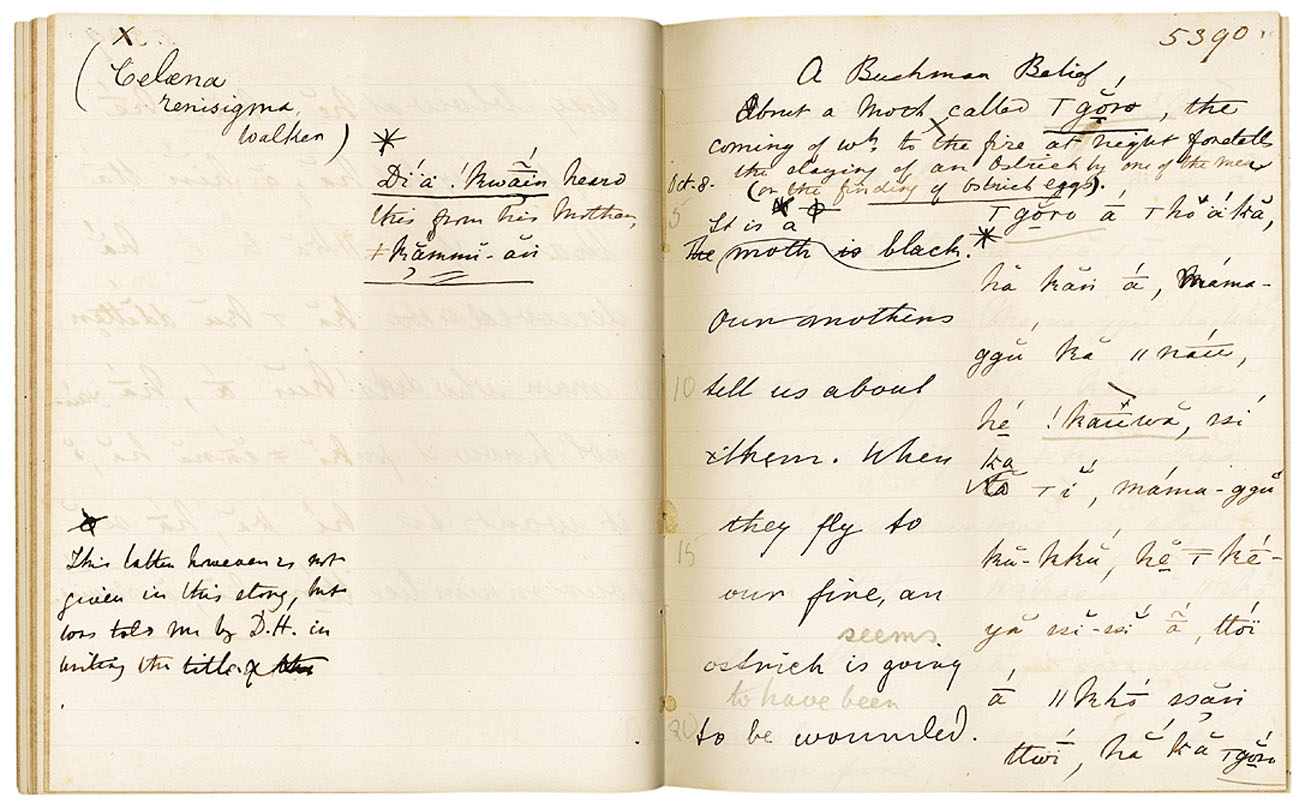 x
(Celæna
renisigma,
Walker)
*
Día !kwãin heard
this from his Mother,
ǂkămmĕ-ăn
This latter however is not
given in this story, but
was told me by D.H. in
writing the title
5390
A Bushman Belief,
About a Moth called ꞱgŎro, the
coming of wh. to the fire at night foretells
the slaying of an Ostrich by one of the men
(or the finding of Ostrich eggs).
Oct. 8.
5
It is a
The moth is black.
Our mothers
10 tell us about
them. When
they fly to
15
our fire, an
seems
ostrich is going
to have been
20 to be wounded.
*
hă kăn á, máma-
ggŭ kă ǁ
hé !kau̅wă, ssí
ka
máma-ggŭ
kŭ-kkŭ, hĕ
yă ssĭ-ssĭ ã́, ttóï
á ǁkhó ssăn
ttóï, hă kă